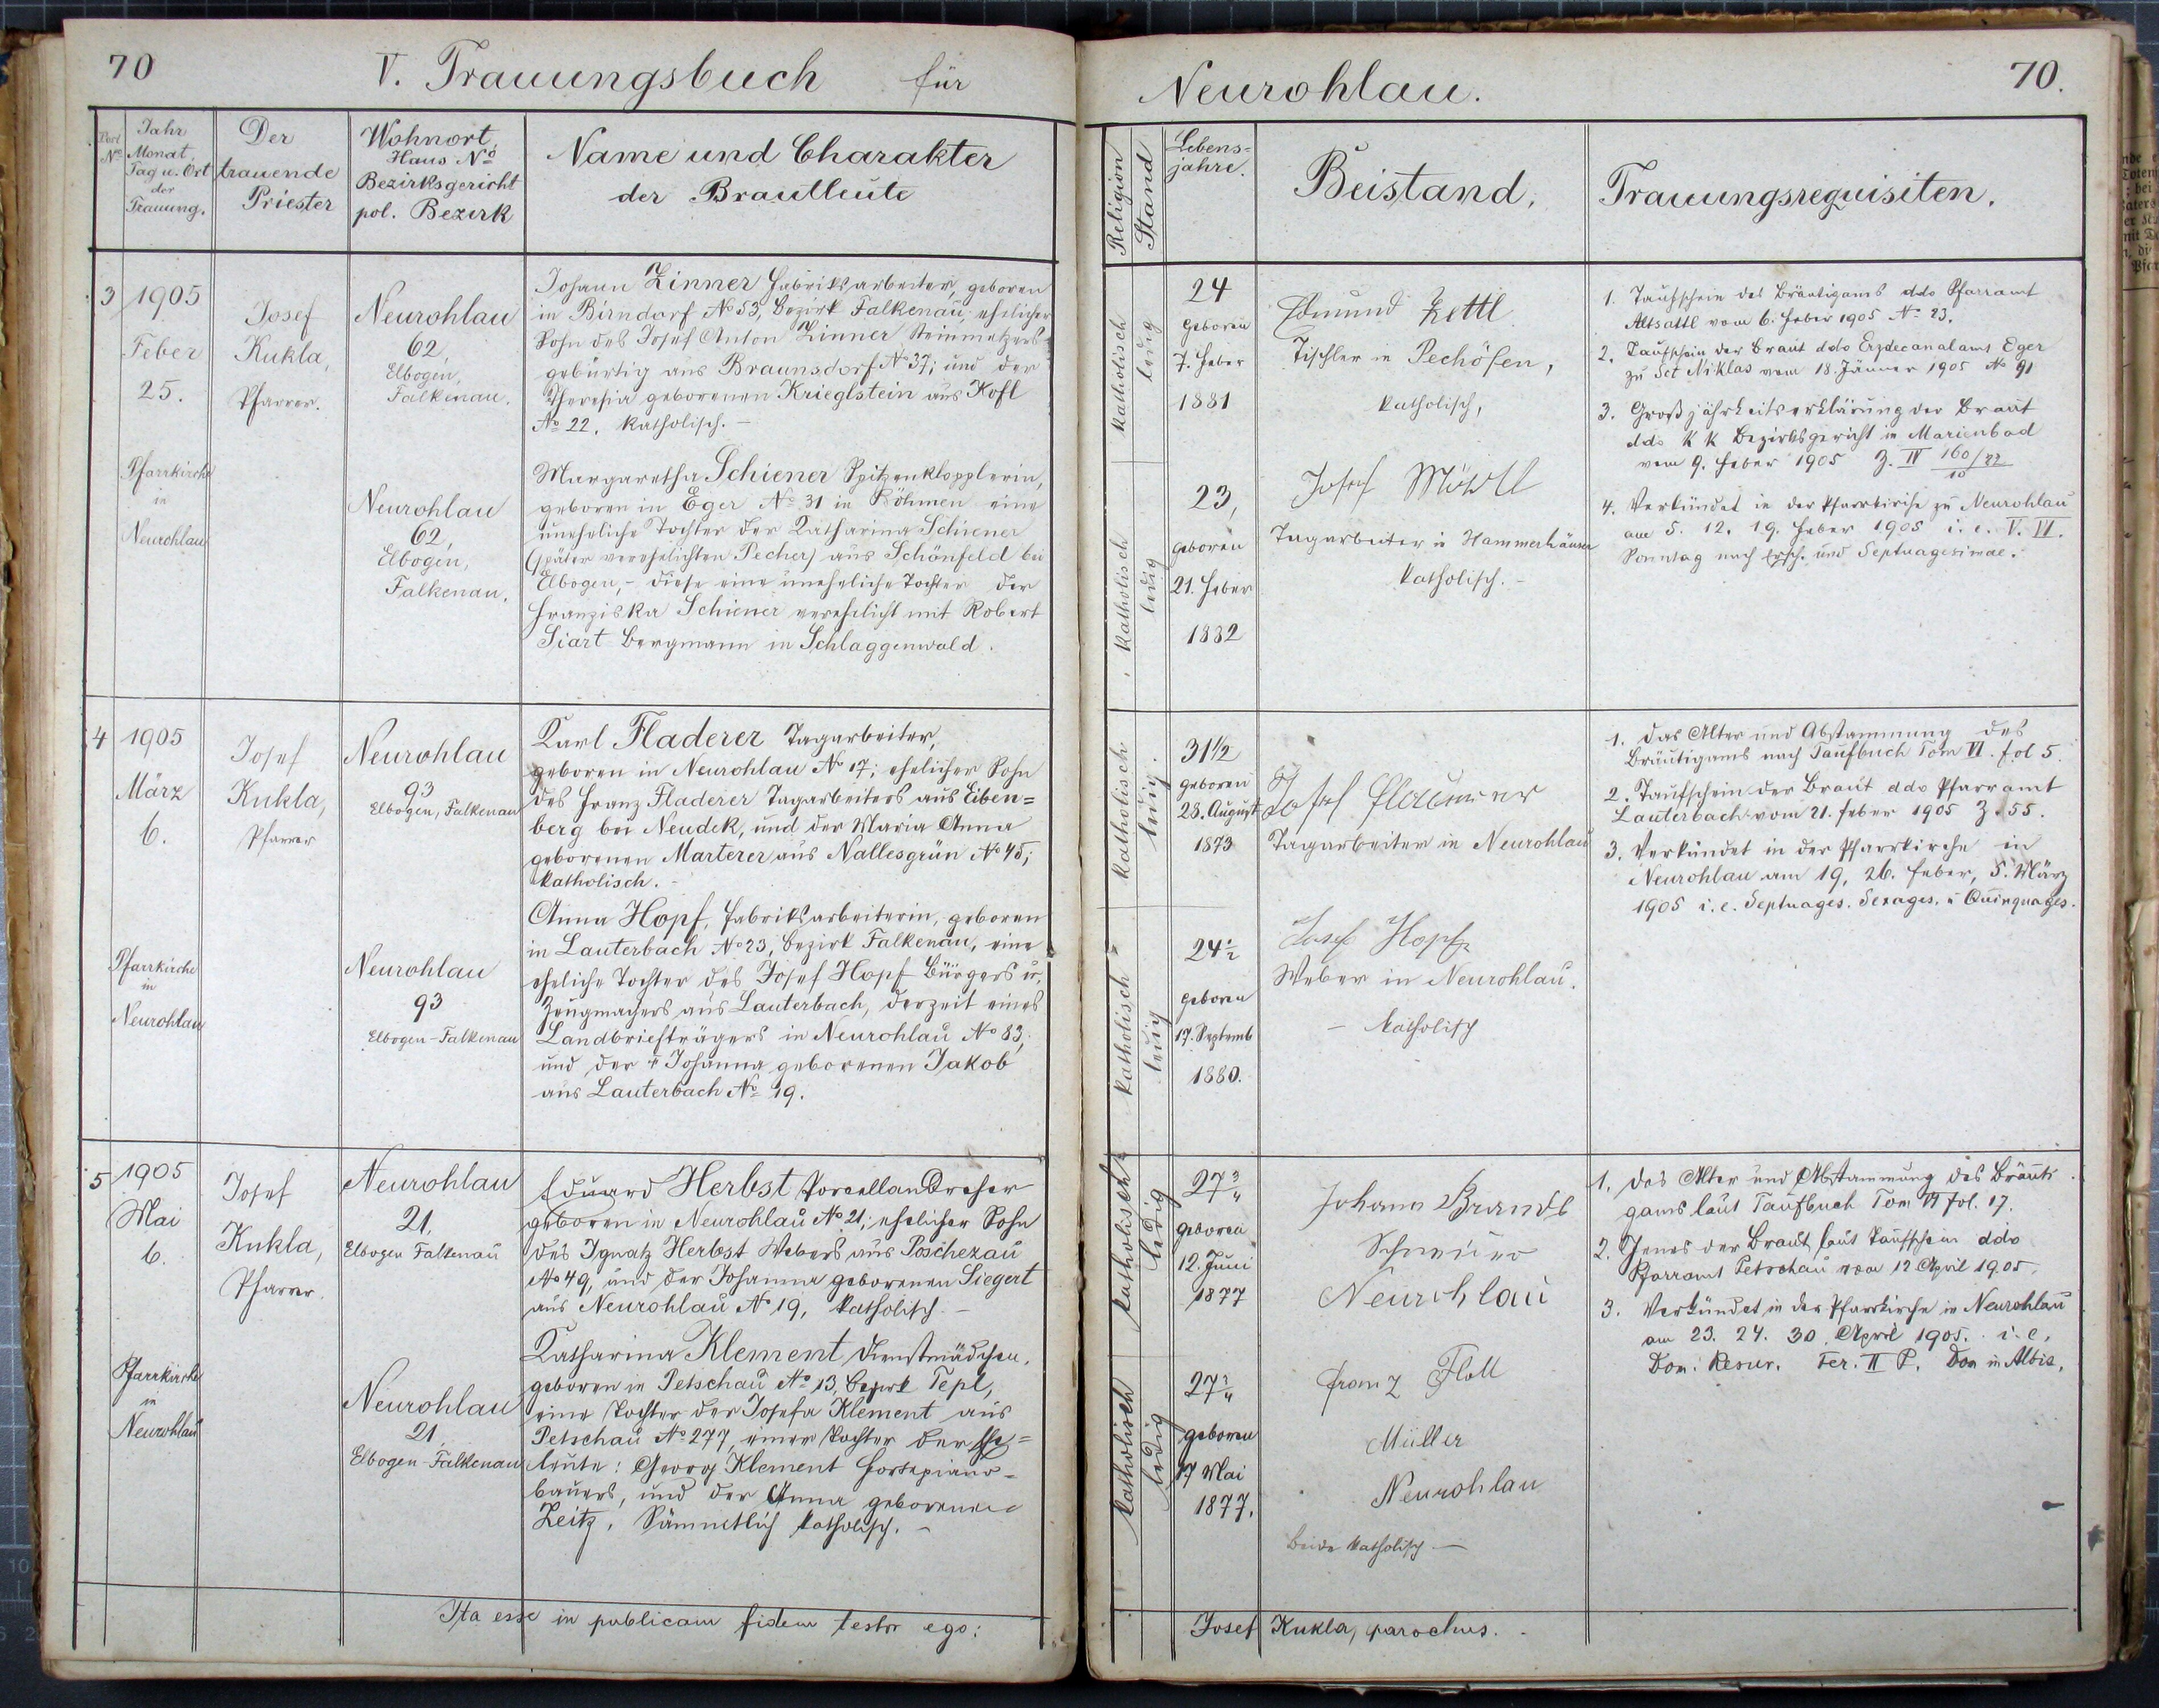 70
V. Trauungsbuch für
Port
No
Jahr
Monat,
Tag u. Ort
der
Trauung.
Der
trauende
Priester
Wohnort
Haus No
Bezirksgericht
pol. Bezirk
Name und Charakter
der Brautleute
3
1905
Feber
25.
Pfarrkirche
in
Neurohlau
Josef
Kukla,
Pfarrer.
Neurohlau
62,
Elbogen,
Falkenau.
Johann Zinner Fabriksarbeiter, geboren
in Birndorf No 53, Bezirk Falkenau, ehelicher
Sohn des Josef Anton Zinner Steinmetzers
gebürtig aus Braunsdorf No 37; und der
Theresia geborenen Krieglstein aus Kofl
No 22. katholisch. -
Neurohlau
62,
Elbogen,
Falkenau.
Margaretha Schiener Spitzenklopplerin,
geboren in Eger No 31 in Böhmen eine
uneheliche Tochter der Katharina Schiener
(später verehelichten Pecher) aus Schönfeld bei
Elbogen, - diese eine uneheliche Tochter der
Franziska Schiener verehelicht mit Robert
Siart Bergmann in Schlaggenwald.
4
1905
März
6.
Pfarrkirche
in
Neurohlau
Josef
Kukla,
Pfarrer
Neurohlau
93
Elbogen, Falkenau
Karl Fladerer Tagarbeiter,
geboren in Neurohlau No 17; ehelicher Sohn
des Franz Fladerer Tagarbeiters aus Eiben=
berg bei Neudek, und der Maria Anna
geborenen Marterer aus Nallesgrün No 45;
katholisch. -
Neurohlau
93
Elbogen-Falkenau
Anna Hopf, Fabriksarbeiterin, geboren
in Lauterbach No 23, Bezirk Falkenau, eine
eheliche Tochter des Josef Hopf Bürgers u.
Zeugmachers aus Lauterbach, derzeit eines
Landbriefträgers in Neurohlau No 83;
und der † Johanna geborenen Jakob
aus Lauterbach No 19.
5
1905
Mai
6.
Pfarrkirche
in
Neurohlau
Josef
Kukla,
Pfarrer.
Neurohlau
21,
Elbogen Falkenau
Eduard Herbst Porcellandreher
geboren in Neurohlau No 21; ehelicher Sohn
des Ignatz Herbst Webers aus Poschezau
No 49, und der Johanna geborenen Siegert
aus Neurohlau No 19, katholisch. -
Neurohlau
21,
Elbogen-Falkenau
Katharina Klement Dienstmädchen,
geboren in Petschau No 13, Bezirk Tepl,
eine Tochter der Josefa Klement aus
Petschau No 277, einer Tochter der Ehe=
leute: Georg Klement Fortepiano=
bauers, und der Anna geborenen
Zeitz. Sämmtlich katholisch. -
Ita esse in publicam fidem testor ego:
Neurohlau.
70.
Religion
Stand
Lebens=
jahre.
Beistand.
Trauungsrequisiten.
katholisch
ledig
24
geboren
7. Feber
1881
Edmund Zettl
Tischler in Pechöfen,
katholisch,
katholisch
ledig
23,
geboren
21. Feber
1882
Josef
Tagarbeiter in Hammerhäuser
katholisch. -
1. Taufschein des Bräutigams ddo Pfarramt
Altsattl vom 6. Feber 1905 No 23.
2. Taufschein der Braut ddo Erzdecanalamt Eger
zu Sct Niklas vom 18. Jänner 1905 No 91
3. Großjährkeitserklärung der Braut
ddo K K Bezirksgericht in Marienbad
vom 9. Feber 1905 Z. IV 160/
10
4. Verkündet in der Pfarrkirche zu Neurohlau
am 5. 12. 19. Feber 1905 i. e. V. VI.
Sonntag nach Ersch. und Septuagesimae.
katholisch
ledig.
31½
geboren
28. August
1873
Josef
Tagarbeiter in Neurohlau
katholisch
ledig
24½
geboren
17. Septemb
1880.
Josef Hopf
Weber in Neurohlau.
- katholisch
1. Das Alter und Abstammung des
Bräutigams nach Taufbuch Tom VI. fol 5.
2. Taufschein der Braut ddo Pfarramt
Lauterbach vom 21. Feber 1905 Z. 55.
3. Verkündet in der Pfarrkirche in
Neurohlau am 19, 26. Feber, 5. März
1905 i. e. Septuages. Sexages. u Quinquages.
katholisch
ledig
27¾
geboren
12. Juni
1877
Johann
Neurohlau
katholisch
ledig
27
geboren
17 Mai
1877.
Franz
Müller
Neurohlau
beide katholisch. -
1. Das Alter und Abstammung des Bräuti
gams laut Taufbuch Tom VI fol. 17.
2. Jenes der Braut laut Taufschein ddo
Pfarramt Petschau vom 12 April 1905.
3. Verkündet in der Pfarrkirche in Neurohlau
am 23. 24. 30. April 1905. i. e.
Dom. Resur. Fer. II P. Dom in Albis.
Josef Kukla, parochus.